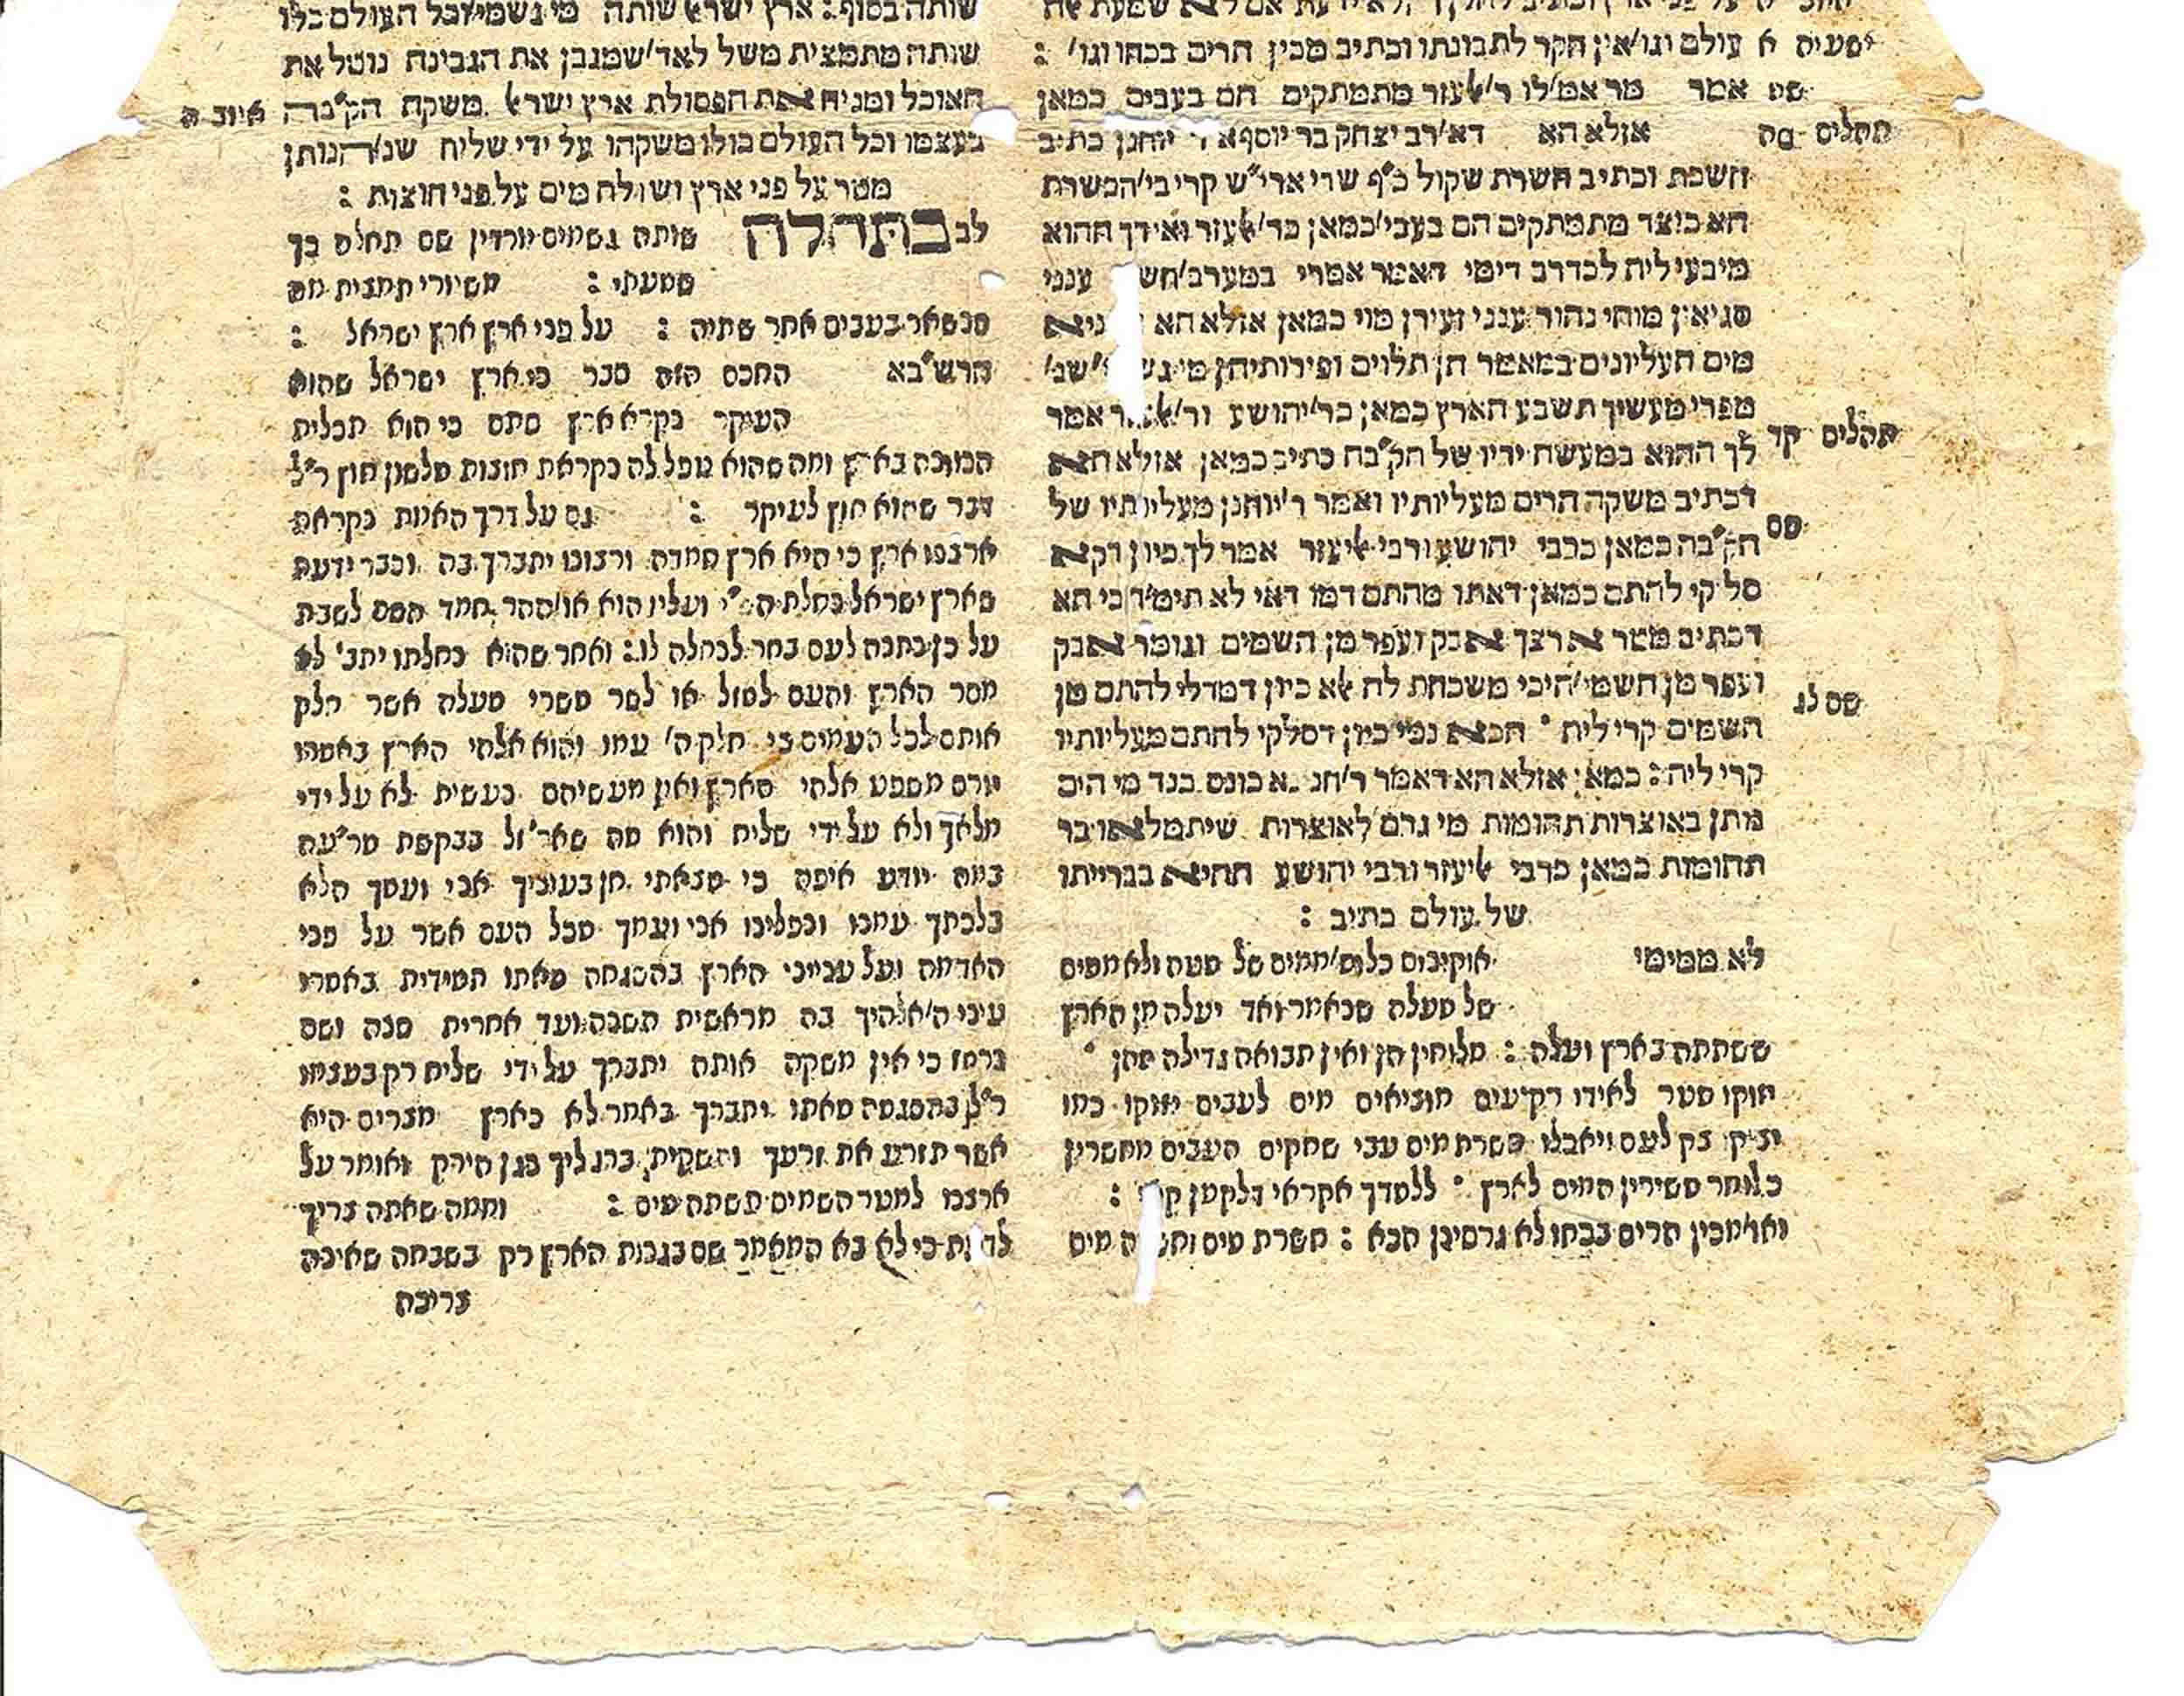 ישעיה א עולם וגו׳ אין חקר לתבונתו וכתיב מכין הרים בכחו וגו׳ :
שם אמר מר אמ׳ לו ר׳ אליעזר מתמתקים הם בעבים כמאן
תהלים סה אזלא הא דא׳ רב יצחק בר יוסף א׳ ר׳ יוחנן כתיב
חשכת וכתיב חשרת שקול כ״ף שרי ארי״ש קרי בי׳ הכשרת
הא כיצד מתמתקים הם בעבי׳ כמאן כר׳ אליעזר ואידך ההוא
מיבעי ליה לכדרב דימי דאמר אמרי במערב׳ חש ענני
סגיאין מוהי נהור ענני זעירן מוי כמאן אזלא הא ניא
מים העליונים במאמר הן תלוים ופירותיהן מי גש שנ׳
מפרי מעשיך תשבע הארץ כמאן כר׳ יהושע ור׳ אמר
תהלים קד
לך ההוא במעשה ידיו של הק״בה כתיב כמאן אזלא הא
דכתיב משקה הרים מעליותיו ואמר ר׳ יוחנן מעליותיו של
שם
הק״בה כמאן כרבי יהושע ורבי אליעזר אמר לך כיון דקא
סלקי להתם כמאן דאתו מהתם דמו דאי לא תימ׳ הכי הא
דכתיב מטר ארצך אבק ועפר מן השמים וגומר אבק
ועפר מן השמי׳ היכי משכחת לה אלא כיון דמדלי להתם מן
שם לג
השמים קרי ליה הכא נמי כיון דסלקי להתם מעליותיו
קרי ליה : כמאן אזלא הא דאמר ר׳ חנ א כונס כנד מי הים
נותן באוצרות תהומות מי גרם לאוצרות שיתמלאו בר
תהומות כמאן כרבי אליעזר ורבי יהושע ההיא בברייתו
של עולם כתיב :
לא ממימי אוקינוס כלומ׳ ממים של מטה ולא ממים
של מעלה שנאמר ואד יעלה מן הארץ
ששתתה בארץ ועלה : מלוחין הן ואין תבואה גדילה מהן
יזוקו מטר לאידו רקיעים מוציאים מים לעבים יזוקו כמו
יציק צק לעם ויאכלו חשרת מים עבי שחקים העבים מחשרין
כלומר משירין המים לארץ ללמדך אקראי דלקמן ק :
ואו׳ מכין הרים בכחו לא גרסינן הכא : חשרת מים וח מים
שותה בסוף : ארץ ישראל שותה מי גשמי׳ וכל העולם כלו
שותה מתמצית משל לאד׳ שמגבן את הגבינה נוטל את
האוכל ומניח את הפסולת ארץ ישראל משקה הק״בה
איוב ה
בעצמו וכל העולם כולו משקהו על ידי שליח שנ׳ הנותן
מטר על פני ארץ ושולח מים על פני חוצות :
לב בתחלה שותה גשמים יורדין שם תחלה כך
שמעתי : משיורי תמצית מה
שנשאר בעבים אחר שתיה : על פני ארץ ארץ ישראל :
הרש״בא החכם הזה סבר כי ארץ ישראל שהוא
העיקר נקרא ארץ סתם כי הוא תכלית
הכוונה בארץ ומה שהוא טפל לה נקראת חוצות מלשון חוץ ר״ל
דבר שהוא חוץ לעיקר : גם על דרך האמת נקראת
ארצנו ארץ כי היא ארץ חמדה ורצונו יתברך בה וכבר ידעת
שארץ ישראל נחלת ה׳ ועליו הוא או׳ ההר חמד השם לשבת
על כן נתנה לעם בחר לנחלה לו : ואחר שהוא נחלתו יתב׳ לא
מסר הארץ והעם למזל או לשר משרי מעלה אשר חלק
אותם לכל העמים כי חלק ה׳ עמו והוא אלהי הארץ באמרו
טרם משפט אלהי הארץ ואין מעשיהם נעשית לא על ידי
מלאך ולא על ידי שליח והוא מה שאז״ל בבקשת מר״עה
במה יודע איפה כי מצאתי חן בעיניך אני ועמך הלא
בלכתך עמנו ונפלינו אני ועמך מכל העם אשר על פני
האדמה ועל ענייני הארץ בהשגחה מאתו תמידית באמרו
עיני ה׳ אלהיך בה מראשית השנה ועד אחרית שנה ושם
נרמז כי אין משקה אותה יתברך על ידי שליח רק בעצמו
ר״ל בהשגחה מאתו יתברך באמר לא כארץ מצרים היא
אשר תזרע את זרעך והשקית ברגליך כגן הירק ואומר על
ארצנו למטר השמים תשתה מים : וממה שאתה צריך
לד ת כי לא בא המאמר שם בגנות הארץ רק בשבחה שאינה
צריכה